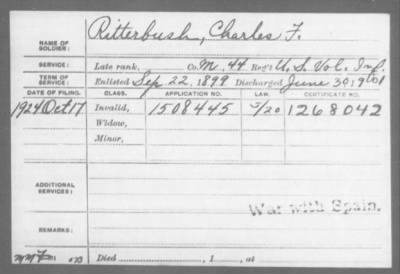 NAME OF SOLDIER: Ritterbush, Charles F.
SERVICE: Late rank, Co. M, 44 Reg't U. S. Vol. Inf.
TERM OF SERVICE: Enlisted Sep 22, 1899 Discharged June 30, 1901
DATE OF FILING. CLASS. APPLICATION NO. LAW. CERTIFICATE NO.
1924 Oct 17 Invalid, 1508445 5/20 1268042
Widow,
Minor,
ADDITIONAL SERVICES:
War with Spain.
REMARKS:
Died , 1 , at